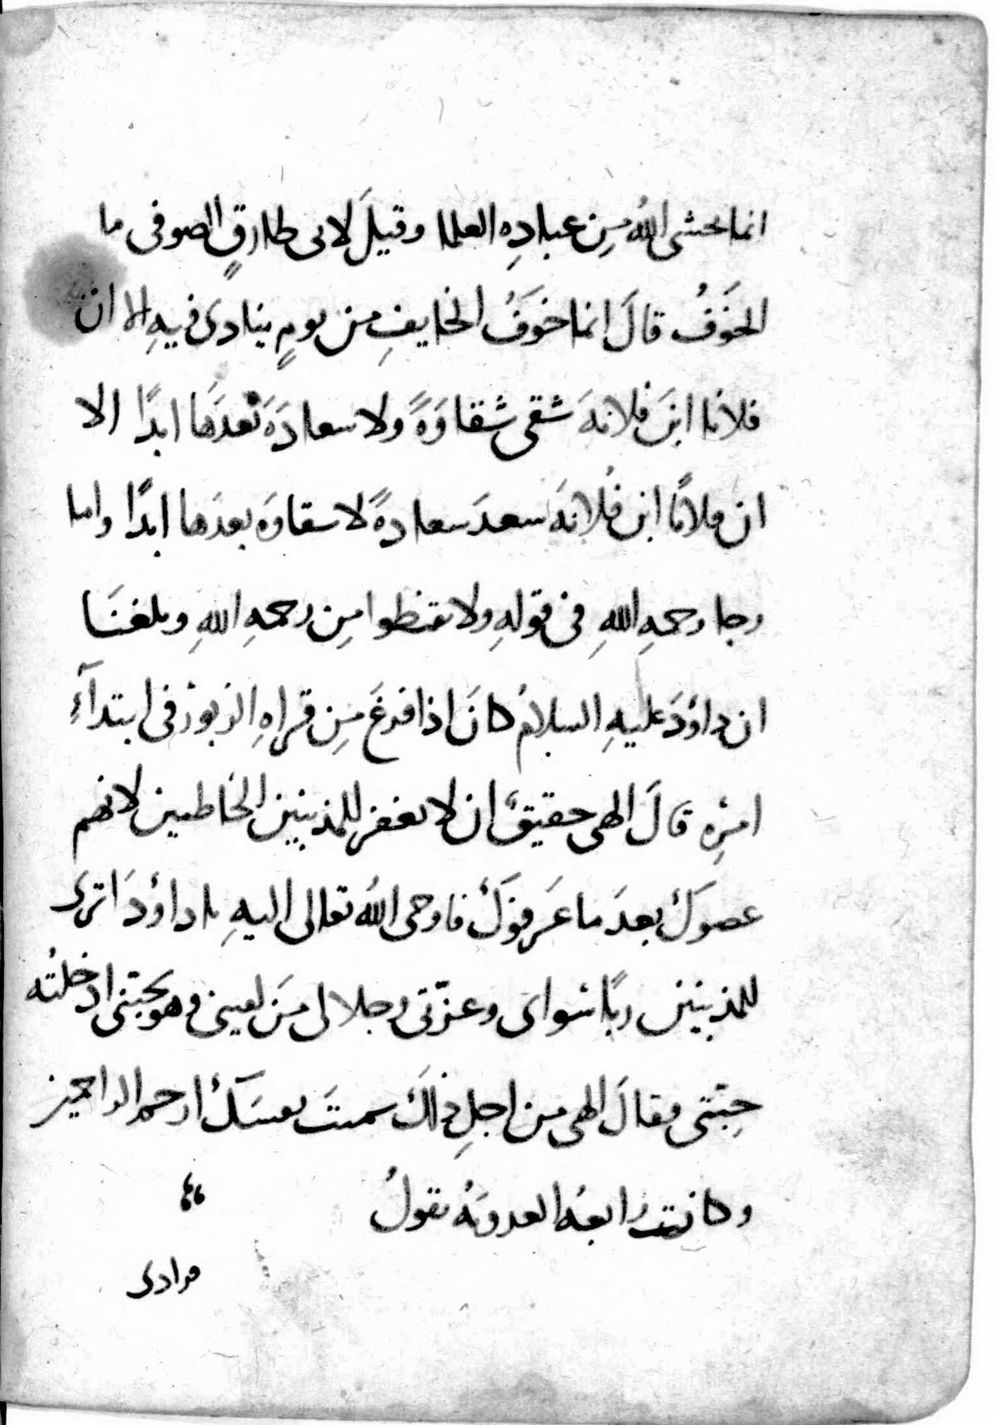 انما يخشى اللهُ مِن عبادِه العلما وقيلَ لابى طارقٍ الصوفى ما
الخَوَفُ قالَ انما خوَفُ الخايفِ من يومٍ ينادى فيهِ الا ان
فلانا ابنَ فلانهَ شقى شقاوَةً ولا سعادَهَ بَعدَها ابدًا الا
ان فلانًا ابن فُلانهَ سعدَ سعادةً لا شقاوَه بعدَها ابدًا واما
رجا رحمهِ اللهِ فى قولهِ ولا تقنطوا مِن رحمهِ اللهِ وبلغنَا
ان داوُدَ عليهِ السلامُ كانَ اذا فرغَ مِن قراهِ الزبورِ فى ابتدآءِ
امرِه قالَ الهى حقيقٌ ان لا تغفر للمذنبين الخاطيين لانهم
عصوَكَ بعدَ ما عَرَفوَكَ فاوحى اللهُ تعالى اليهِ يا داوُدَ اترى
للمذنبين ربًا سواى وعزّتى وجلالى مَن لقينى وهو يحبّنى ادخلتُه
جنتى فقالَ الهى من اجلِ ذلكَ سميتَ نفسَكَ ارحمَ الراحمين
وكانت رابعه العدويهُ تقولُ
مرادى